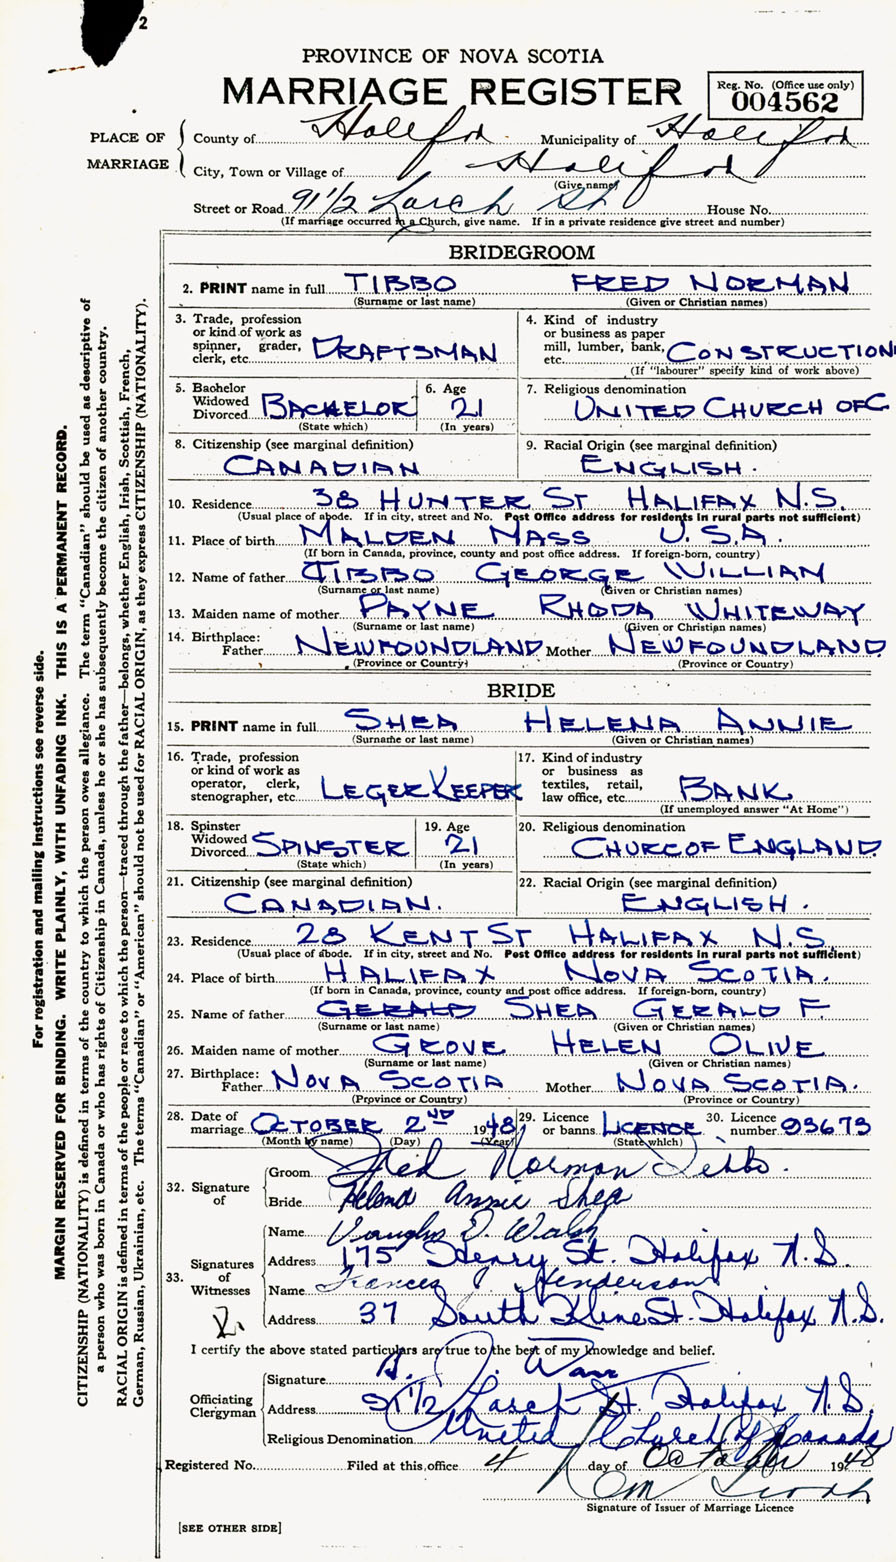 2
PROVINCE OF NOVA SCOTIA
MARRIAGE REGISTER
Reg. No. (Office use only)
004562
PLACE OF MARRIAGE
County of Halifax Municipality of Halifax
City, Town or Village of Halifax
(Give name)
Street or Road 91 1/2 Larch St House No.
(If marriage occurred in a Church, give name. If in a private residence give street and number)
BRIDEGROOM
2. PRINT name in full TIBBO FRED NORMAN
(Surname or last name) (Given or Christian names)
3. Trade, profession or kind of work as spinner, grader, clerk, etc. DRAFTSMAN
4. Kind of industry or business as paper mill, lumber, bank, etc. CONSTRUCTION
(If "labourer" specify kind of work above)
5. Bachelor Widowed Divorced BACHELOR
(State which)
6. Age 21
(In years)
7. Religious denomination
UNITED CHURCH OF C
8. Citizenship (see marginal definition)
CANADIAN
9. Racial Origin (see marginal definition)
ENGLISH.
10. Residence 38 HUNTER ST HALIFAX N.S.
(Usual place of abode. If in city, street and No. Post Office address for residents in rural parts not sufficient)
11. Place of birth MALDEN MASS U.S.A.
(If born in Canada, province, county and post office address. If foreign-born, country)
12. Name of father TIBBO GEORGE WILLIAN
(Surname or last name) (Given or Christian names)
13. Maiden name of mother PAYNE RHODA WHITEWAY
(Surname or last name) (Given or Christian names)
14. Birthplace: Father NEWFOUNDLAND Mother NEWFOUNDLAND
(Province or Country) (Province or Country)
BRIDE
15. PRINT name in full SHEA HELENA ANNIE
(Surname or last name) (Given or Christian names)
16. Trade, profession or kind of work as operator, clerk, stenographer, etc. LEGER KEEPER
17. Kind of industry or business as textiles, retail, law office, etc. BANK
(If unemployed answer "At Home")
18. Spinster Widowed Divorced SPINSTER
(State which)
19. Age 21
(In years)
20. Religious denomination
CHURC OF ENGLAND.
21. Citizenship (see marginal definition)
CANADIAN.
22. Racial Origin (see marginal definition)
ENGLISH.
23. Residence 28 KENT ST HALIFAX N.S.
(Usual place of abode. If in city, street and No. Post Office address for residents in rural parts not sufficient)
24. Place of birth HALIFAX NOVA SCOTIA.
(If born in Canada, province, county and post office address. If foreign-born, country)
25. Name of father GERALD SHEA GERALD F.
(Surname or last name) (Given or Christian names)
26. Maiden name of mother GROVE HELEN OLIVE
(Surname or last name) (Given or Christian names)
27. Birthplace: Father NOVA SCOTIA Mother NOVA SCOTIA.
(Province or Country) (Province or Country)
28. Date of marriage OCTOBER 2ND 1948
(Month by name) (Day) (Year)
29. Licence or banns LICENCE
(State which)
30. Licence number 93673
32. Signature of
Groom Fred Norman Tibbo.
Bride Helena Annie Shea
33. Signatures of Witnesses
Name Vaughn D. Walsh
Address 175 Henry St. Halifax N.S.
Name Frances J Henderson
Address 37 South Kline St. Halifax N.S.
I certify the above stated particulars are true to the best of my knowledge and belief.
Officiating Clergyman
Signature
Address 91 1/2 Larch St. Halifax N.S.
Religious Denomination United Church of Canada
Registered No. Filed at this office 4 day of October 1948
Signature of Issuer of Marriage Licence
[SEE OTHER SIDE]
For registration and mailing instructions see reverse side.
MARGIN RESERVED FOR BINDING. WRITE PLAINLY, WITH UNFADING INK. THIS IS A PERMANENT RECORD.
CITIZENSHIP (NATIONALITY) is defined in terms of the country to which the person owes allegiance. The term "Canadian" should be used as descriptive of
a person who was born in Canada or who has rights of Citizenship in Canada, unless he or she has subsequently become the citizen of another country.
RACIAL ORIGIN is defined in terms of the people or race to which the person—traced through the father—belongs, whether English, Irish, Scottish, French,
German, Russian, Ukrainian, etc. The terms "Canadian" or "American" should not be used for RACIAL ORIGIN, as they express CITIZENSHIP (NATIONALITY).